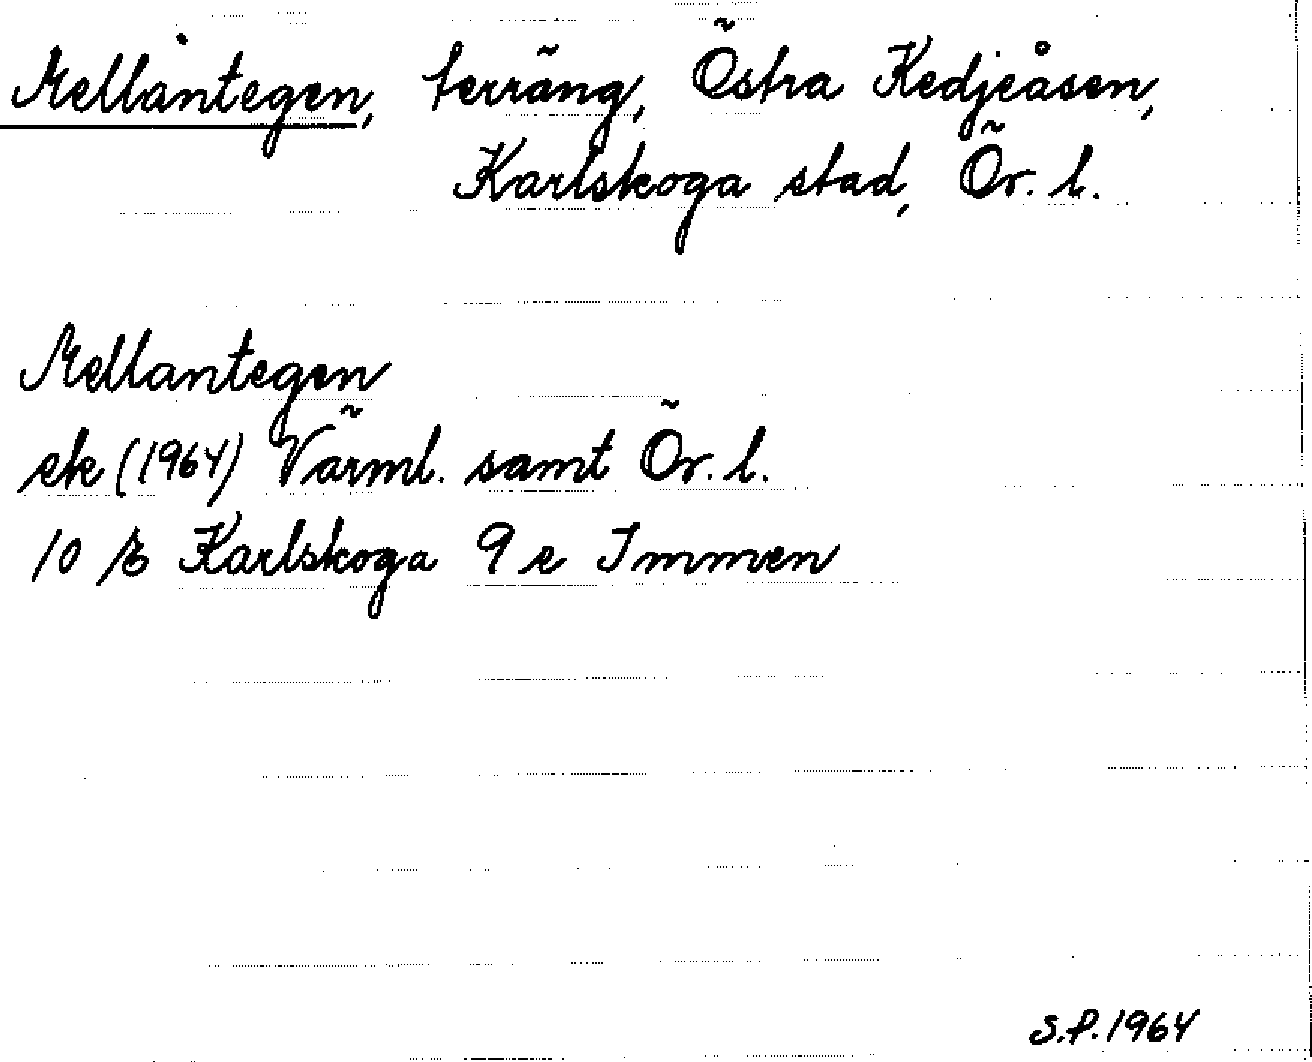 Mellantegen, terräng, Östra Kedjeåsen,
Karlskoga stad, Ör. l.
Mellantegen
ek (1964) Värml. samt Ör. l.
10 E Karlskoga 9 e Immen
S.P. 1964